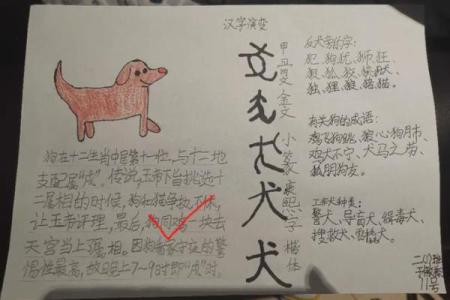 汉字演变
狗在十二生肖中居第十一位,与十二地
支配属“戌”。传说,玉帝下旨挑选十
二属相的时候,狗和猫争执不休,
让玉帝评理,最后,狗同鸡一块去
天宫当上属相。因狗看家守夜的警
惕性最高,故晚上7~9时即“戌”时。
甲骨文
金文
小篆
康熙字
楷体
犬
犬
反犬旁的字:
犯、狗、犹、狮、狂、
狼、狐、狡、
独、狸、狼、猪、猫。
有关狗的成语:
鸡飞狗跳、狼心狗肺、
鸡犬不宁、犬马之劳、
狐朋狗友。
工作犬种类:
警犬、导盲犬、缉毒犬、
搜救犬、雪橇犬。
11号